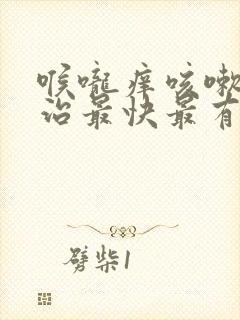 喉咙痒咳嗽
治最快最有
劈柴1